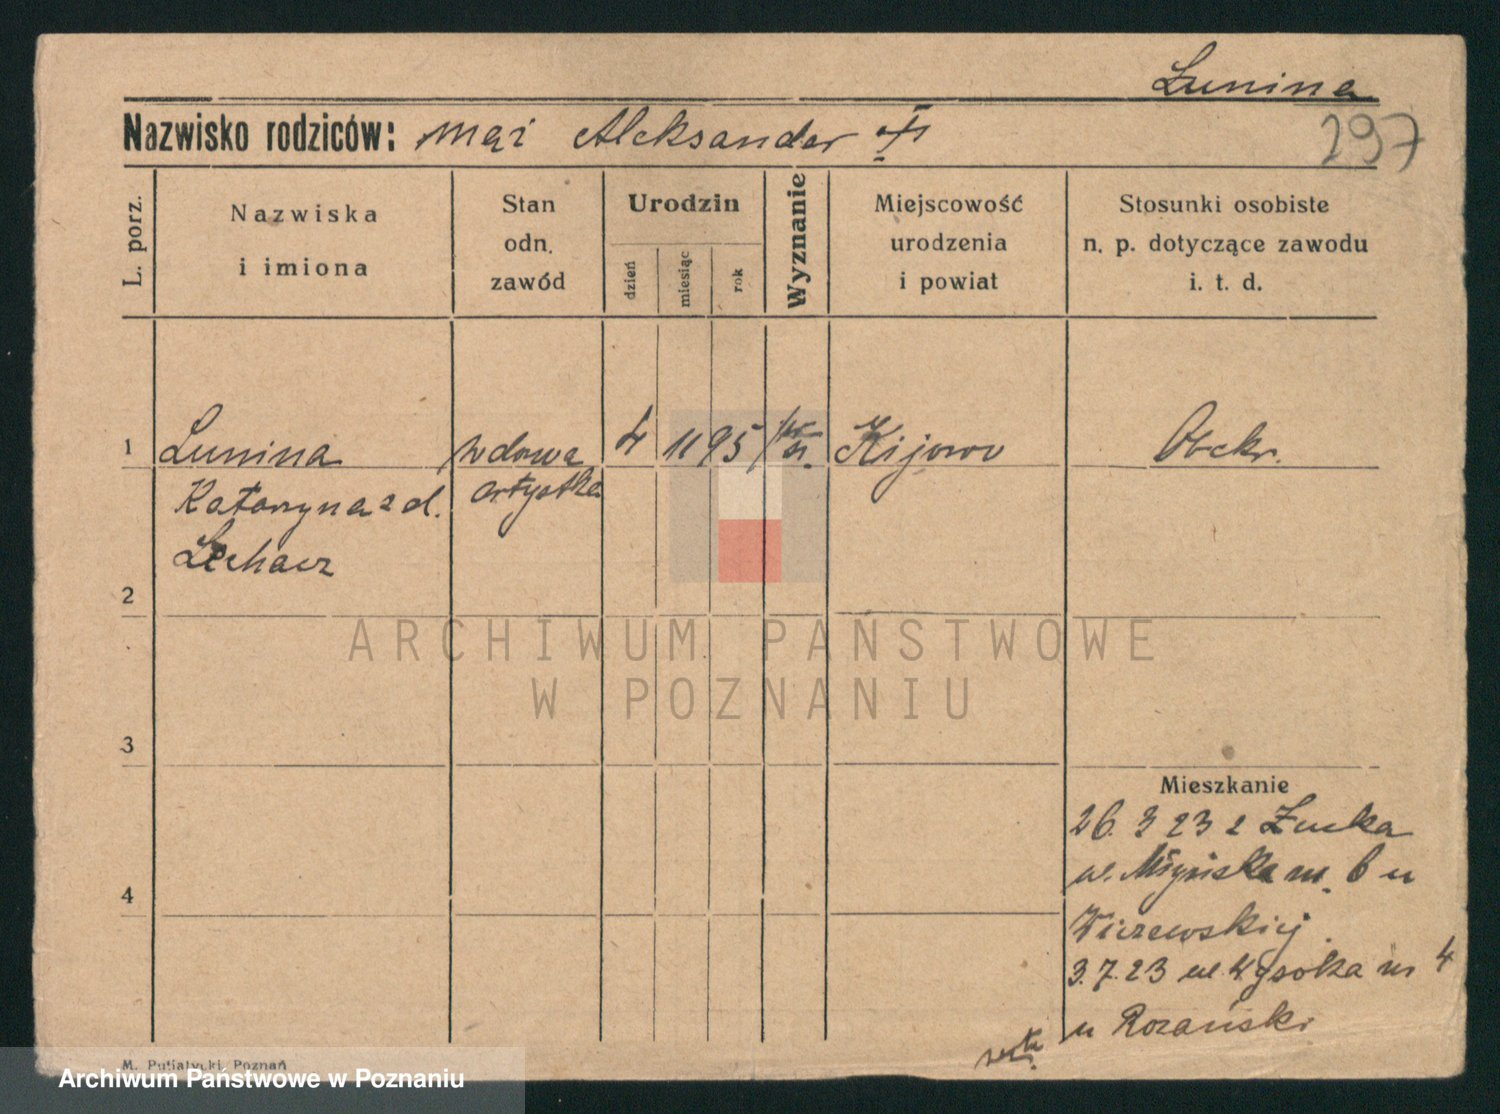 Lunina
Nazwisko rodziców: mąż Aleksander
297
L. porz.
Nazwiska
i imiona
Stan
odn.
zawód
Urodzin
dzień
miesiąc
rok
Wyznanie
Miejscowość
urodzenia
i powiat
Stosunki osobiste
n. p. dotyczące zawodu
i. t. d.
1 Lunina wdowa 4 11 95 Kijowo
Katarzyna z d. artystka
2
3
4
Mieszkanie
26. 3 23 z Łucka
ul. m. 6 u
3.7.23 ul. Wysoka m 4
u Rozański
M. Putiatycki, Poznań
ARCHIWUM PAŃSTWOWE
W POZNANIU
Archiwum Państwowe w Poznaniu